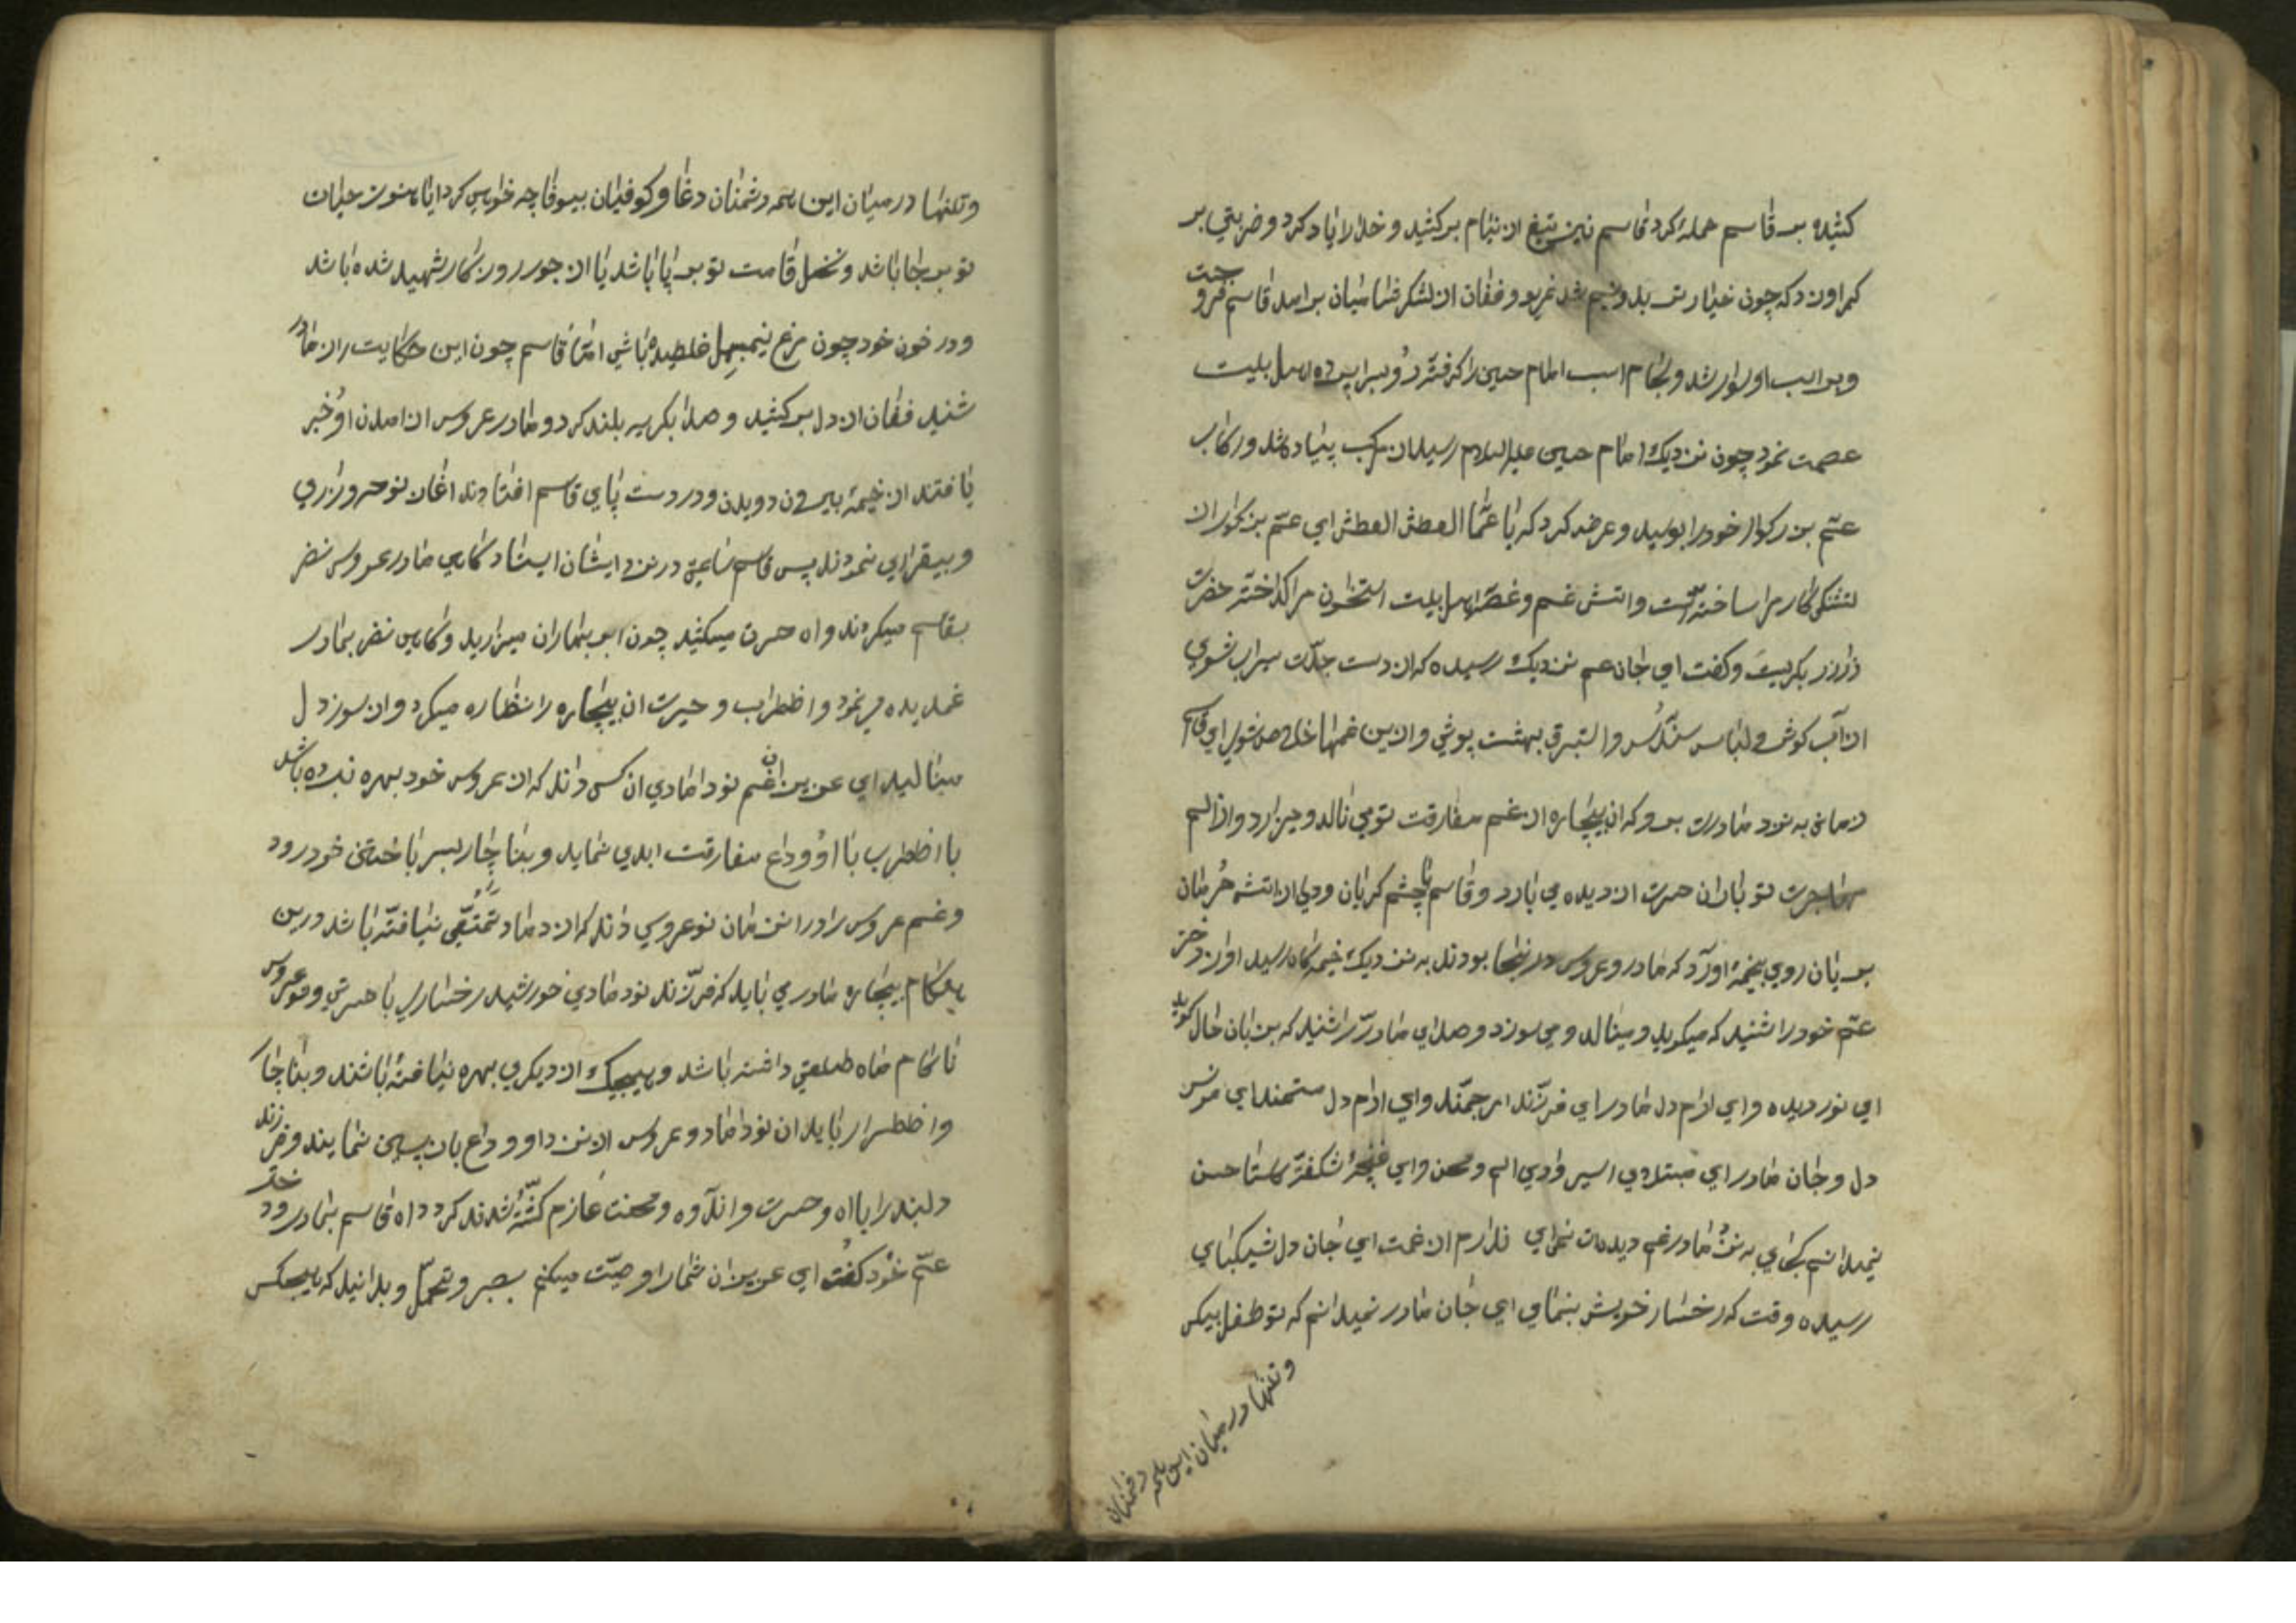 کشیده بر قاسم حمله کرد قاسم نیز تیغ از نیام برکشید و خدا را یاد کرد و ضربتی بر
کمر او زد که چون خیار تر بدو نیم شد غریو و فغان از لشکر شامیان برامد قاسم فرو جست
و بر اسب او سوار شد و لجام اسب امام حسین را گرفته رو بسراپرده اهل بیت
عصمت نمود چون نزدیک امام حسین علیه السلام رسید از مرکب پیاده شد و رکاب
عم بزرکوار خود را بوسید و عرض کرد که یا عماه العطش العطش ای عم بزرکوار از
تشنکی کار مرا ساخته است و اتش غم و غصه اهل بیت استخوان مرا کداخته حضرت
زار زار بکریست و کفت ای جان عم نزدیک رسیده که از دست جدت سیراب شوی
از آب کوثر و لباس سندس و استبرق بهشت پوشی و ازین غمها خلاص شوی ای قاسم
زمانی به نزد مادرت برو که ان بیچاره از غم مفارقت تو می نالد و میزارد و از الم
مهاجرت تو باران حسرت از دیده می بارد و قاسم با چشم کریان و دلی از اتش حرمان
بریان روی بخیمه اورد که مادر و عروس در اینجا بودند به نزدیک خیمه کاه رسید اواز دختر
عم خود را شنید که میکوید و مینالد و می سوزد و صدای مادر را شنید که بزبان حال کوید
ای نور دیده و ای ارام دل مادر ای فرزند ارجمند و ای ارام دل مستمند ای مونس
دل و جان مادر ای مبتلای اسیر وادی الم و محن و ای غنچه شکفته کلستان حسن
نمیدانم کجای به نزد مادر غم دیده ات نمی ای ندارم از غمت ای جان دل شیکبای
رسیده وقت که رخسار خویش بنمای ای جان مادر نمیدانم که تو طفل بیکس
و تنها در میان این همه دشمنان
و تنها در میان این همه دشمنان دغا و کوفیان بیوفا چه خواهی کرد ایا هنوز حیات
تو بر جا باشد و نخل قامت تو بر پا باشد یا از جور روزکار شهید شده باشد
و در خون خود چون مرغ نیم بسمل غلطیده باشی اما قاسم چون این حکایت را از مادر
شنید فغان از دل برکشید و صدا بکریه بلند کرد و مادر عروس از امدن او خبر
یافتند از خیمه بیرون دویدن و در دست پای قاسم افتادند اغاز نوحه و زاری
و بیقراری نمودند پس قاسم ساعتی در نزد ایشان ایستاد کاهی مادر عروس نضر
بقاسم میکردند و اه حسرت میکشید چون ابر بهاران میزارید و کاهی نضر بمادر
غمدیده می نمود و اضطراب و حیرت ان بیچاره را نظاره میکرد و از سوز دل
مینالید ای عزیزان غم نو دامادی ان کس داند که از عروس خود بهره نبرده باشد
با اضطراب با او وداع مفارقت ابدی نماید و بناچار بسر باختن خود رود
و غم عروس را در ان زمان نو عروسی داند که از داماد تمتعی نیافته باشد درین
هنکام بیچاره مادری باید که فرزند نو دامادی خورشید رخساری با حسرتی و نو عروس
ناکام ماه طلعتی داشته باشد و هیچیک از دیکری بهره نیافته باشند و بناچار
و اضطرار باید ان نو داماد و عروس از نزد او وداع باز پسین نمایند و فرزند
دلبند را با اه و حسرت و اندوه و محنت عازم کشته شدن کردد اه قاسم بمادر و دختر
عم خود کفت ای عزیزان شما را وصیت میکنم بصبر و تحمل و بدانید که هیچکس